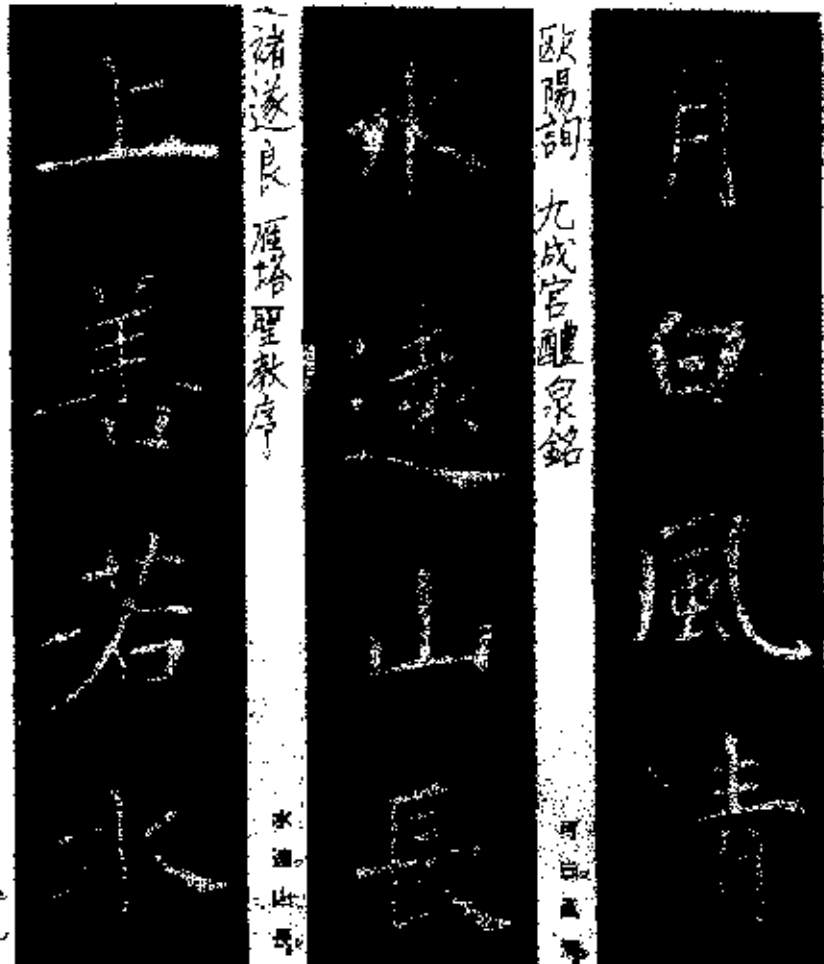 月白風清
欧陽詢 九成宮醴泉銘
月白風清
水遠山長
褚遂良 雁塔聖教序
水遠山長
上善若水